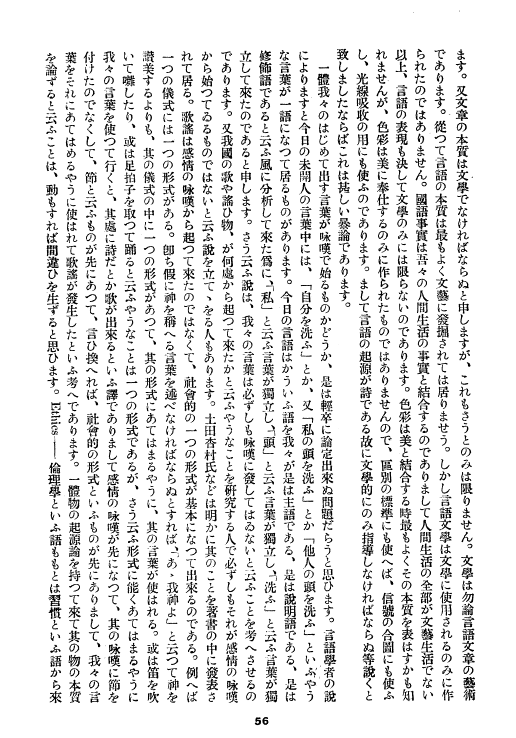 ます。又文章の本質は文學でなければならぬと申しますが、これもさうとのみは限りません。文學は勿論言語文章の藝術
であります。從つて言語の本質は最もよく文藝に發掘されては居りませう。しかし言語文學は文學に使用されるのみに作
られたのではありません。國語事實は吾々の人間生活の事實と結合するのでありまして人間生活の全部が文藝生活でない
以上、言語の表現も決して文學のみには限らないのであります。色彩は美と結合する時最もよくその本質を表はすかも知
れませんが、色彩は美に奉仕するのみに作られたものではありませんので、區別の標準にも使へば、信號の合圖にも使ふ
し、光線吸收の用にも使ふのであります。まして言語の起源が詩である故に文學的にのみ指導しなければならぬ等說くと
致しましたならばこれは甚しい暴論であります。
一體我々のはじめて出す言葉が咏嘆で始るものかどうか、是は輕卒に論定出來ぬ問題だらうと思ひます。言語學者の說
によりますと今日の未開人の言葉中には、「自分を洗ふ」とか、又「私の頭を洗ふ」とか「他人の頭を洗ふ」といふやう
な言葉が一語になつて居るものがあります。今日の言語はかういふ語を我々が是は主語である、是は說明語である、是は
修飾語であると云ふ風に分析して來た爲に、「私」と云ふ言葉が獨立し、「頭」と云ふ言葉が獨立し、「洗ふ」と云ふ言葉が獨
立して來たのであると申します。さう云ふ說は、我々の言葉は必ずしも咏嘆に發してはゐないと云ふことを考へさせるの
であります。又我國の歌や謠ひ物、が何處から起つて來たかと云ふやうなことを硏究する人で必ずしもそれが感情の咏嘆
から始つてゐるものではないと云ふ說を立てゝをる人もあります。土田杏村氏などは明かに其のことを著書の中に發表さ
れて居る。歌謠は感情の咏嘆から起つて來たのではなくて、社會的の一つの形式が基本になつて出來るのである。例へば
一つの儀式には一つの形式がある。卽ち假に神を稱へる言葉を述べなければならぬとすれば、「あゝ我神よ」と云つて神を
讚美するよりも、其の儀式の中に一つの形式があつて、其の形式にあてはまるやうに、其の言葉が使はれる。或は笛を吹
いて囃したり、或は足拍子を取つて踊ると云ふやうなことは一つの形式であるが、さう云ふ形式に能くあてはまるやうに
我々の言葉を使つて行くと、其處に詩だとか歌が出來るといふ譯でありまして感情の咏嘆が先になつて、其の咏嘆に節を
付けたのでなくして、節と云ふものが先にあつて、言ひ換へれば、社會的の形式といふものが先にありまして、我々の言
葉をそれにあてはめるやうに使はれて歌謠が發生したといふ考へであります。一體物の起源論を持つて來て其の物の本質
を論ずると云ふことは、動もすれば間違ひを生ずると思ひます。Ethics——倫理學といふ語ももとは習慣といふ語から來
56